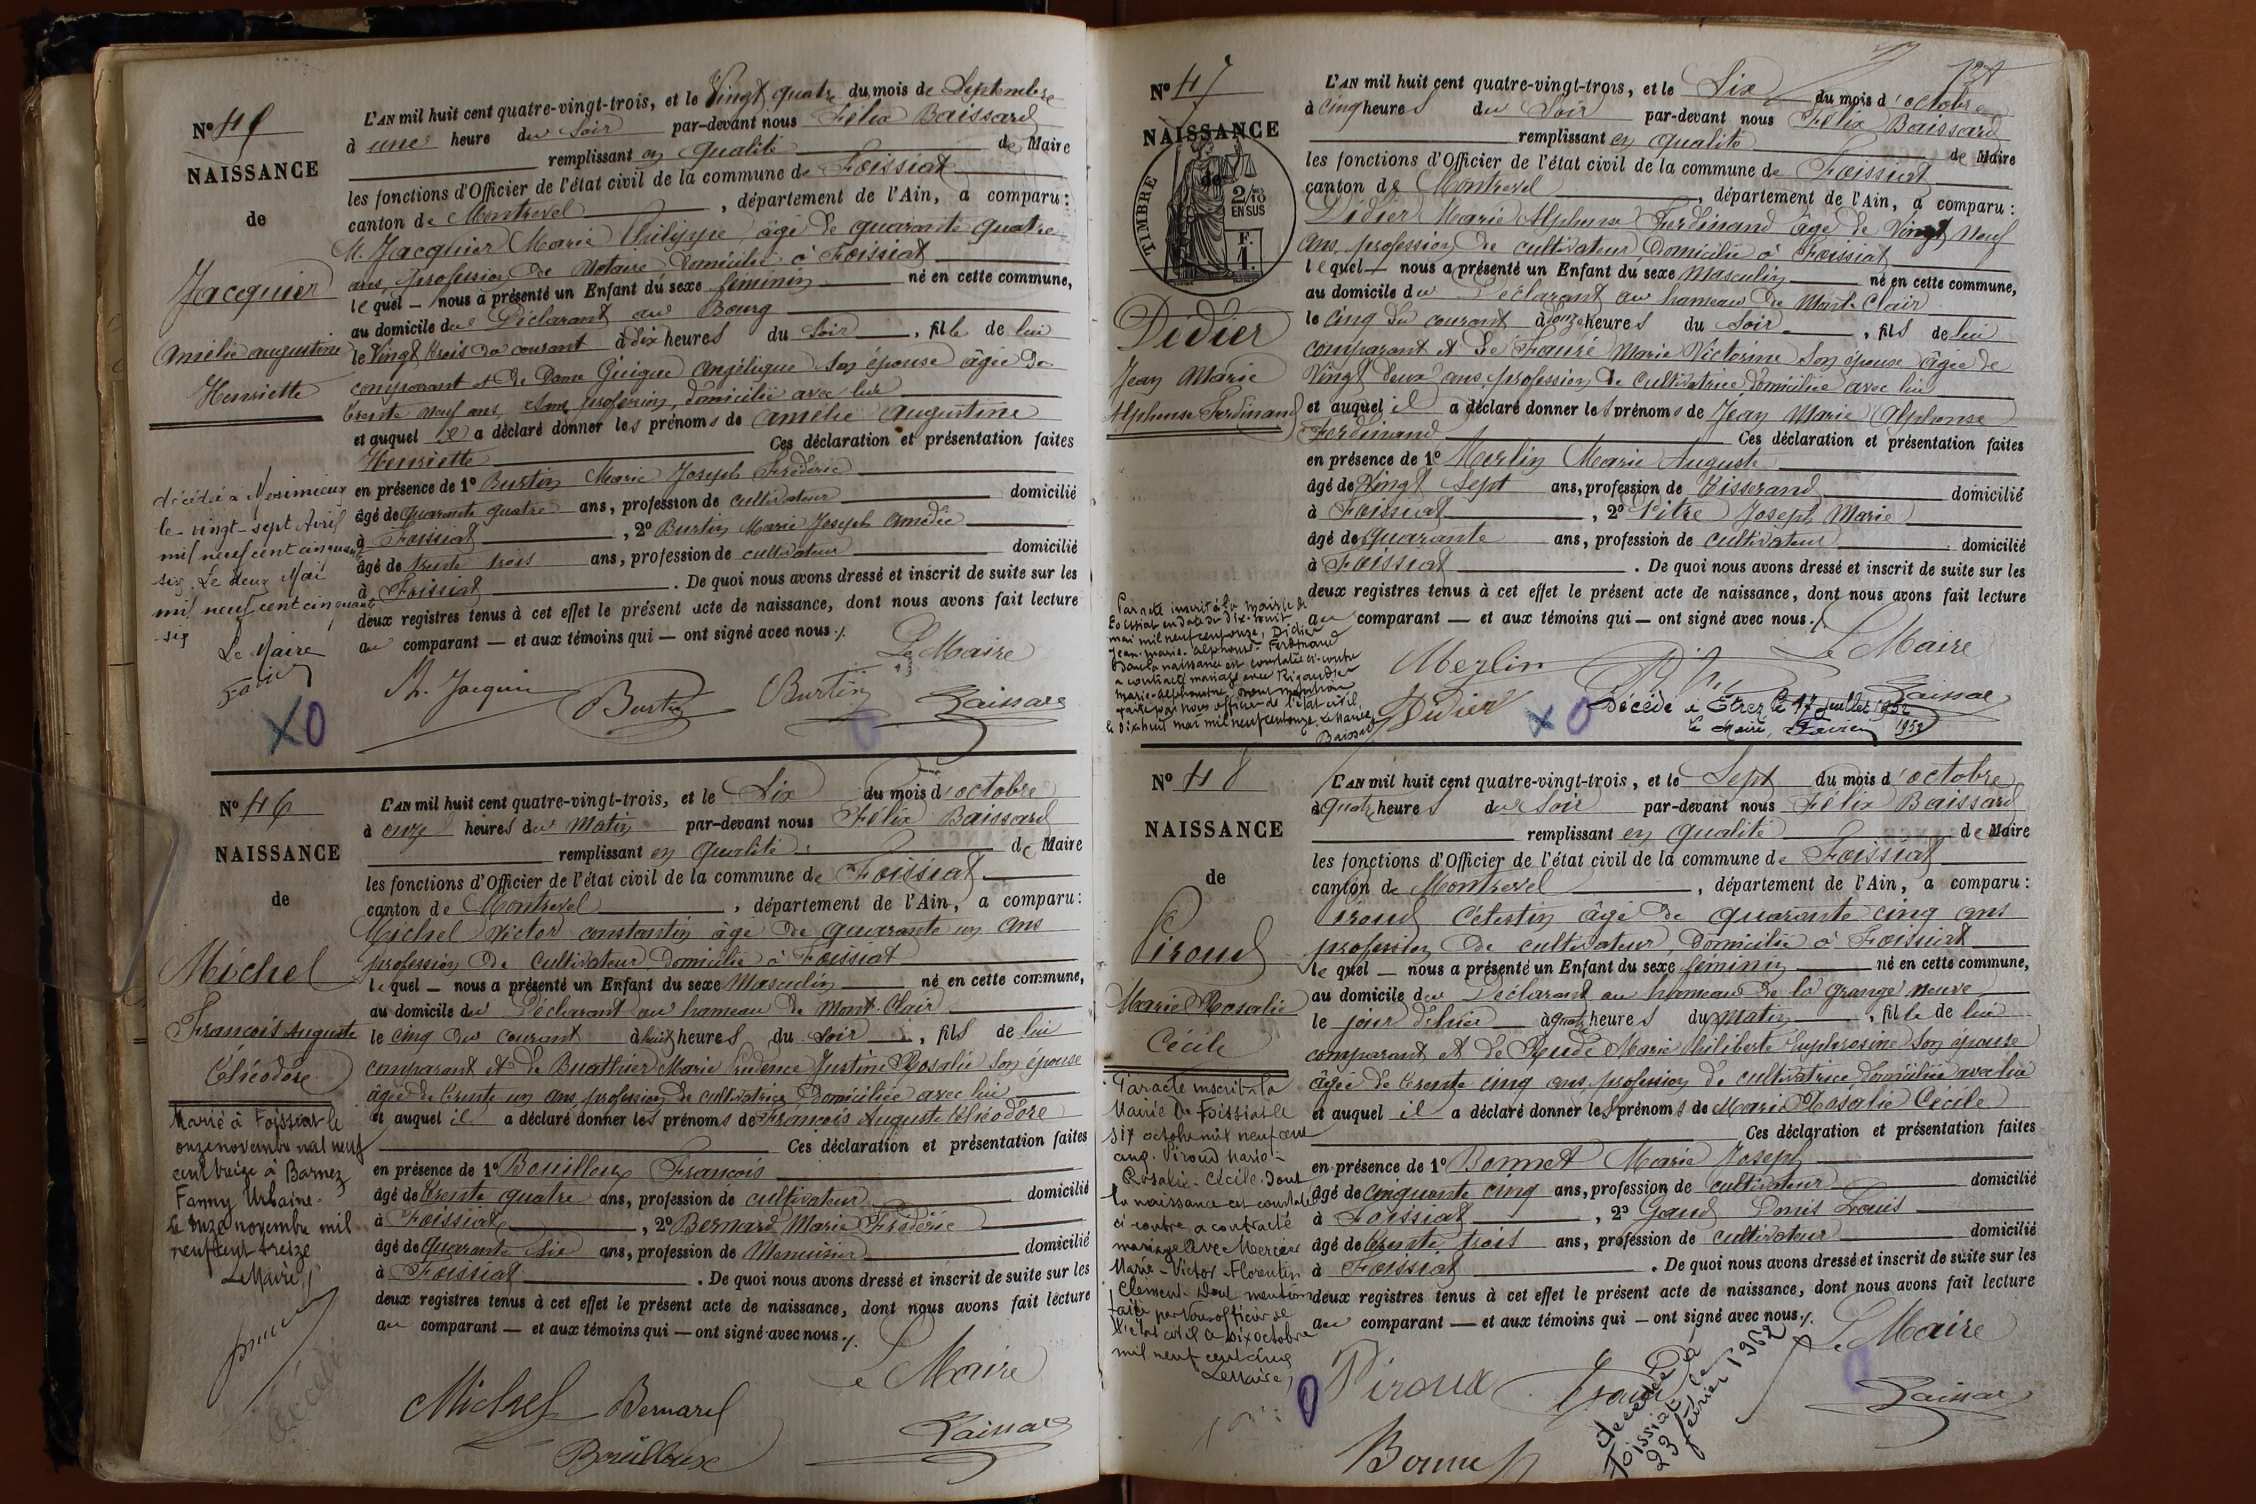 N° 45
NAISSANCE
de
Jacquier
Amélie Augustine
Henriette
décédée à Meximieux
le vingt-sept Avril
mil neuf cent cinquante
six. Le deux Mai
mil neuf cent cinquante
-six
Le Maire
L'AN mil huit cent quatre-vingt-trois, et le Vingt quatre du mois de Septembre
à une heure du soir par-devant nous Félix Baissard
remplissant en qualité de Maire
les fonctions d'Officier de l'état civil de la commune de Foissiat
canton de Montrevel, département de l'Ain, a comparu :
M. Jacquier Marie Philippe âgé de quarante quatre
ans, profession de Notaire domicilié à Foissiat
lequel — nous a présenté un Enfant du sexe féminin né en cette commune,
au domicile du Déclarant au Bourg
le Vingt trois du courant à dix heures du soir, fille de lui
comparant et de Dame Guigue Angélique son épouse âgée de
trente neuf ans, sans profession, domiciliée avec lui
et auquel il a déclaré donner les prénoms de Amélie Augustine
Henriette Ces déclaration et présentation faites
en présence de 1° Burtin Marie Joseph Frédéric
âgé de quarante quatre ans, profession de cultivateur domicilié
à Foissiat, 2° Burtin Marie Joseph Amedée
âgé de trente trois ans, profession de cultivateur domicilié
à Foissiat. De quoi nous avons dressé et inscrit de suite sur les
deux registres tenus à cet effet le présent acte de naissance, dont nous avons fait lecture
au comparant — et aux témoins qui — ont signé avec nous ./.
Le Maire
Jacquier Burtin Burtin Baissard
X O
N° 46
NAISSANCE
de
Michel
François Auguste
Théodore
Marié à Foissiat le
onze novembre mil neuf
cent treize à Barnez
Fanny Urbaine.
Le onze novembre mil
neuf cent treize
Le Maire
Décédé
L'AN mil huit cent quatre-vingt-trois, et le Six du mois d'octobre
à onze heures du Matin par-devant nous Félix Baissard
remplissant en qualité de Maire
les fonctions d'Officier de l'état civil de la commune de Foissiat
canton de Montrevel, département de l'Ain, a comparu :
Michel Victor constantin âgé de quarante un ans
profession de Cultivateur domicilié à Foissiat
lequel — nous a présenté un Enfant du sexe Masculin né en cette commune,
au domicile du Déclarant au hameau de Mont-Clair
le cinq du courant à huit heures du soir, fils de lui
comparant et de Buathier Marie Prudence Justine Rosalie son épouse
âgée de trente un ans, profession de cultivatrice, domiciliée avec lui
et auquel il a déclaré donner les prénoms de François Auguste Théodore
Ces déclaration et présentation faites
en présence de 1° Bouilloux François
âgé de trente quatre ans, profession de cultivateur domicilié
à Foissiat, 2° Bernard Marie Frédéric
âgé de quarante six ans, profession de Menuisier domicilié
à Foissiat. De quoi nous avons dressé et inscrit de suite sur les
deux registres tenus à cet effet le présent acte de naissance, dont nous avons fait lecture
au comparant — et aux témoins qui — ont signé avec nous ./.
Le Maire
Michel Bernard
Bouilloux Baissard
N° 47
NAISSANCE
de
TIMBRE
2/10
EN SUS
F.
1.
Didier
Jean Marie
Alphonse Ferdinand
Par acte inscrit à la mairie de
Foissiat en date du dix-huit
mai mil neuf cent onze, Didier
Jean-Marie-Alphonse-Ferdinand
dont la naissance est constatée ci-contre
a contracté mariage avec Rigaudier
Marie-Alphonsine dont mention
faite par nous officier de l'état civil,
le dix huit mai mil neuf cent onze. Le Maire
Baissard
L'AN mil huit cent quatre-vingt-trois, et le Six du mois d'octobre
à cinq heures du Soir par-devant nous Félix Baissard
remplissant en qualité de Maire
les fonctions d'Officier de l'état civil de la commune de Foissiat
canton de Montrevel, département de l'Ain, a comparu :
Didier Marie Alphonse Ferdinand âgé de Vingt neuf
ans, profession de cultivateur domicilié à Foissiat
lequel — nous a présenté un Enfant du sexe Masculin né en cette commune,
au domicile du Déclarant au hameau de Mont-Clair
le cinq du courant à onze heures du Soir, fils de lui
comparant et de Fauré Marie Victorine son épouse âgée de
Vingt deux ans profession de Cultivatrice domiciliée avec lui
et auquel il a déclaré donner les prénoms de Jean Marie Alphonse
Ferdinand Ces déclaration et présentation faites
en présence de 1° Merlin Marie Auguste
âgé de Vingt Sept ans, profession de Tisserand domicilié
à Foissiat, 2° Pitre Joseph Marie
âgé de quarante ans, profession de cultivateur domicilié
à Foissiat. De quoi nous avons dressé et inscrit de suite sur les
deux registres tenus à cet effet le présent acte de naissance, dont nous avons fait lecture
au comparant — et aux témoins qui — ont signé avec nous ./.
Le Maire
Merlin Pitre Baissard
Didier X O Décédé à Etrez le 17 Juillet 1952
Le Maire, 1952
N° 48
NAISSANCE
de
Piroud
Marie Rosalie
Cécile
Par acte inscrit à la
Mairie de Foissiat le
six octobre mil neuf cent
cinq. Piroud Marie-
Rosalie-Cécile. dont
la naissance est constatée
ci-contre a contracté
mariage avec Mercier
Marie-Victor-Florentin
Clément. Dont mention
faite par nous officier de
l'état civil le six octobre
mil neuf cent cinq
Le Maire,
L'AN mil huit cent quatre-vingt-trois, et le Sept du mois d'octobre
à quatre heures du Soir par-devant nous Félix Baissard
remplissant en qualité de Maire
les fonctions d'Officier de l'état civil de la commune de Foissiat
canton de Montrevel, département de l'Ain, a comparu :
Piroud Célestin âgé de quarante cinq ans
profession de cultivateur, domicilié à Foissiat
lequel — nous a présenté un Enfant du sexe féminin né en cette commune,
au domicile du Déclarant au hameau de la grange neuve
le jour d'hier à quatre heures du matin, fille de lui
comparant et de Marie Philiberte Euphrosine son épouse
âgée de trente cinq ans, profession de cultivatrice domiciliée avec lui
et auquel il a déclaré donner les prénoms de Marie Rosalie Cécile
Ces déclaration et présentation faites
en présence de 1° Bonnet Marie Joseph
âgé de cinquante cinq ans, profession de cultivateur domicilié
à Foissiat, 2° Gaud Denis Louis
âgé de trente trois ans, profession de cultivateur domicilié
à Foissiat. De quoi nous avons dressé et inscrit de suite sur les
deux registres tenus à cet effet le présent acte de naissance, dont nous avons fait lecture
au comparant — et aux témoins qui — ont signé avec nous ./.
Le Maire
Piroux Gaud Baissard
Bonnet
décédée à
Foissiat le
23 février 1962